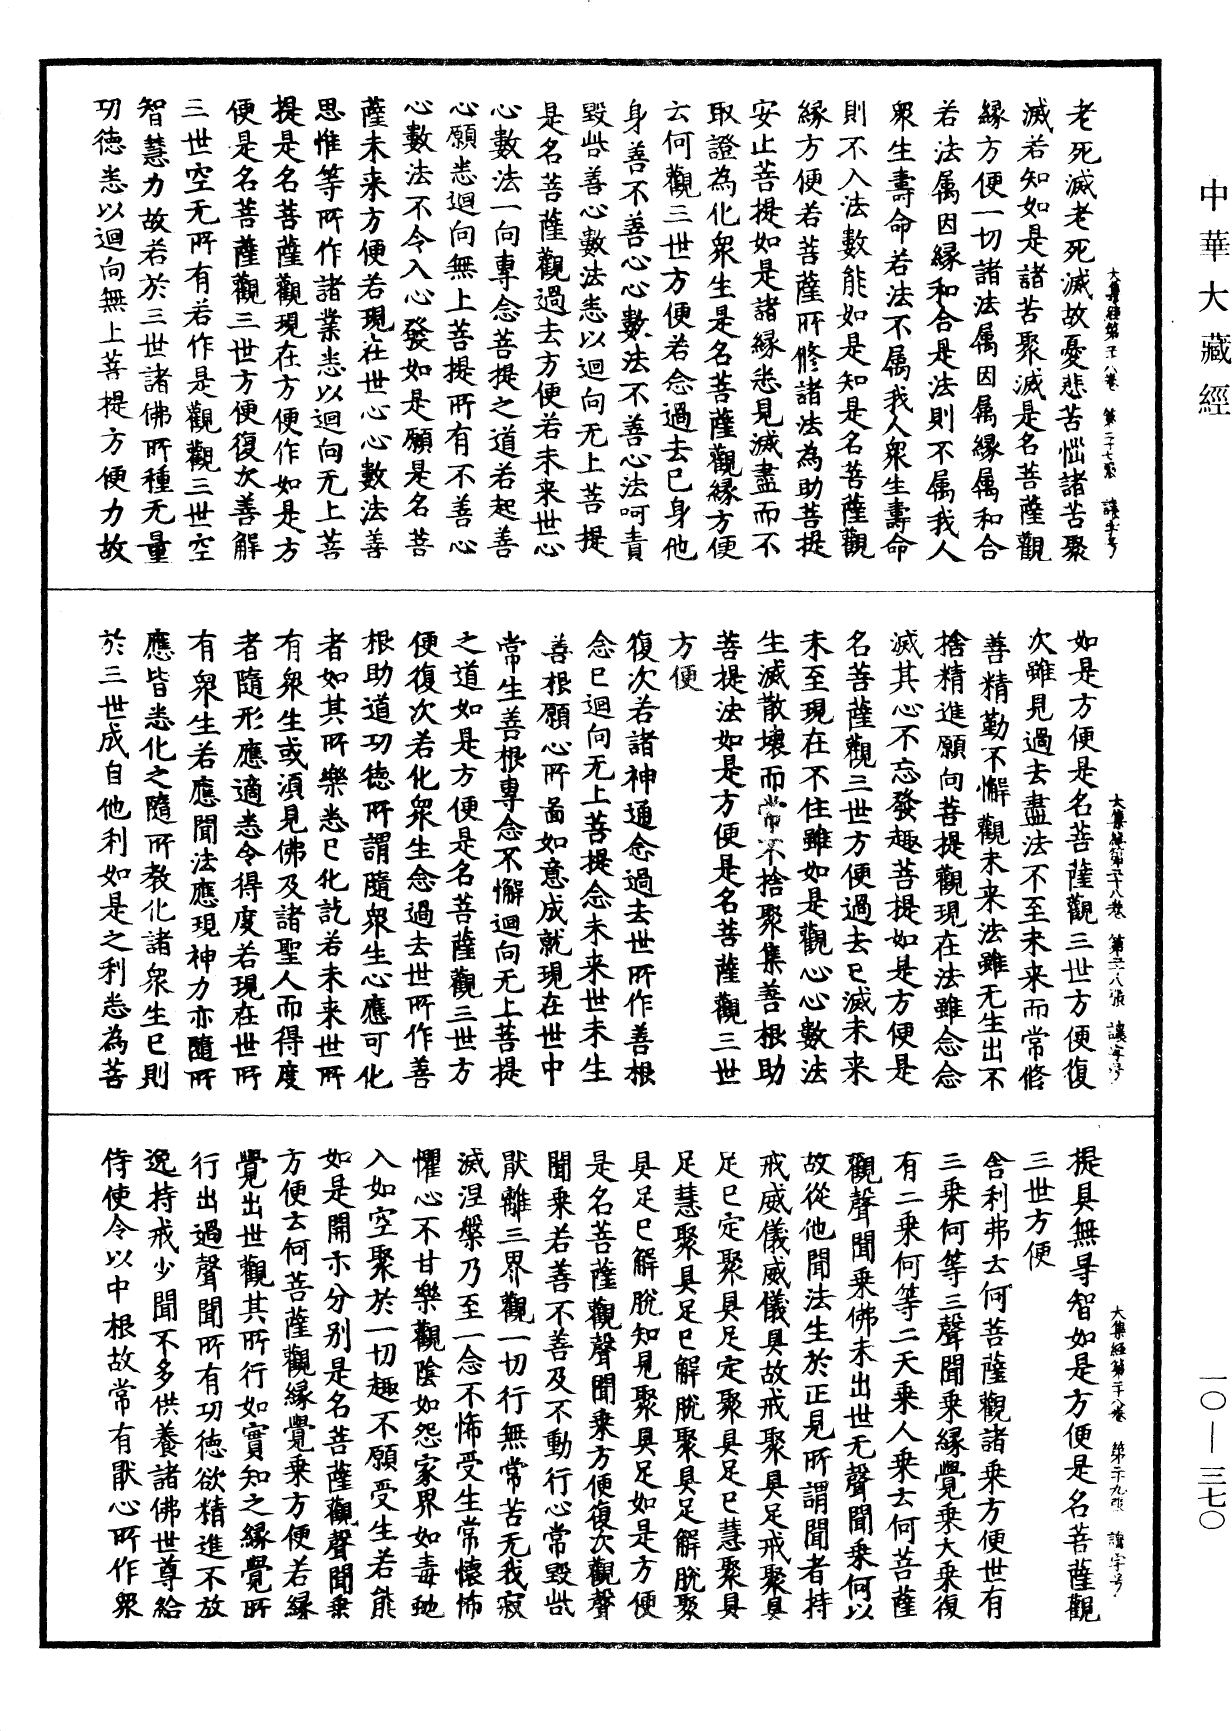 中華大藏經
老死滅老死滅故憂悲苦惱諸苦聚
滅若知如是諸苦聚滅是名菩薩觀
緣方便一切諸法属因属緣属和合
若法属因緣和合是法則不属我人
眾生壽命若法不属我人眾生壽命
則不入法數能如是知是名菩薩觀
緣方便若菩薩所修諸法為助菩提
安止菩提如是諸緣悉見滅盡而不
取證為化眾生是名菩薩觀緣方便
云何觀三世方便若念過去已身他
身善不善心心數法不善心法呵責
毀呰善心數法悉以迴向无上菩提
是名菩薩觀過去方便若未来世心
心數法一向專念菩提之道若起善
心願悉迴向無上菩提所有不善心
心數法不令入心發如是願是名菩
薩未来方便若現在世心心數法善
思惟等所作諸業悉以迴向无上菩
提是名菩薩觀現在方便作如是方
便是名菩薩觀三世方便復次善解
三世空无所有若作是觀觀三世空
智慧力故若於三世諸佛所種无量
功德悉以迴向無上菩提方便力故
大集經第二十八卷 第二十七張 讓字号
如是方便是名菩薩觀三世方便復
次雖見過去盡法不至未来而常修
善精勤不懈觀未来法雖无生出不
捨精進願向菩提觀現在法雖念念
滅其心不忘發趣菩提如是方便是
名菩薩觀三世方便過去已滅未来
未至現在不住雖如是觀心心數法
生滅散壞而常不捨聚集善根助
菩提法如是方便是名菩薩觀三世
方便
復次若諸神通念過去世所作善根
念已迴向无上菩提念未来世未生
善根願心所啚如意成就現在世中
常生善根專念不懈迴向无上菩提
之道如是方便是名菩薩觀三世方
便復次若化眾生念過去世所作善
根助道功德所謂隨眾生心應可化
者如其所樂悉已化訖若未来世所
有眾生或須見佛及諸聖人而得度
者隨形應適悉令得度若現在世所
有眾生若應聞法應現神力亦隨所
應皆悉化之隨所教化諸眾生已則
於三世成自他利如是之利悉為菩
大集經第二十八卷 第二十八張 讓字号
提具無㝵智如是方便是名菩薩觀
三世方便
舍利弗云何菩薩觀諸乘方便世有
三乘何等三聲聞乘緣覺乘大乘復
有二乘何等二天乘人乘云何菩薩
觀聲聞乘佛未出世无聲聞乘何以
故從他聞法生於正見所謂聞者持
戒威儀威儀具故戒聚具足戒聚具
足已定聚具足定聚具足已慧聚具
足慧聚具足已解脫聚具足解脫聚
具足已解脫知見聚具足如是方便
是名菩薩觀聲聞乘方便復次觀聲
聞乘若善不善及不動行心常毀呰
猒離三界觀一切行無常苦无我寂
滅涅槃乃至一念不怖受生常懷怖
懼心不甘樂觀陰如怨家界如毒虵
入如空聚於一切趣不願受生若能
如是開示分別是名菩薩觀聲聞乘
方便云何菩薩觀緣覺乘方便若緣
覺出世觀其所行如實知之緣覺所
行出過聲聞所有功德欲精進不放
逸持戒少聞不多供養諸佛世尊給
侍使令以中根故常有猒心所作眾
大集經第二十八卷 第二十九張 讓字号
一〇—三七〇